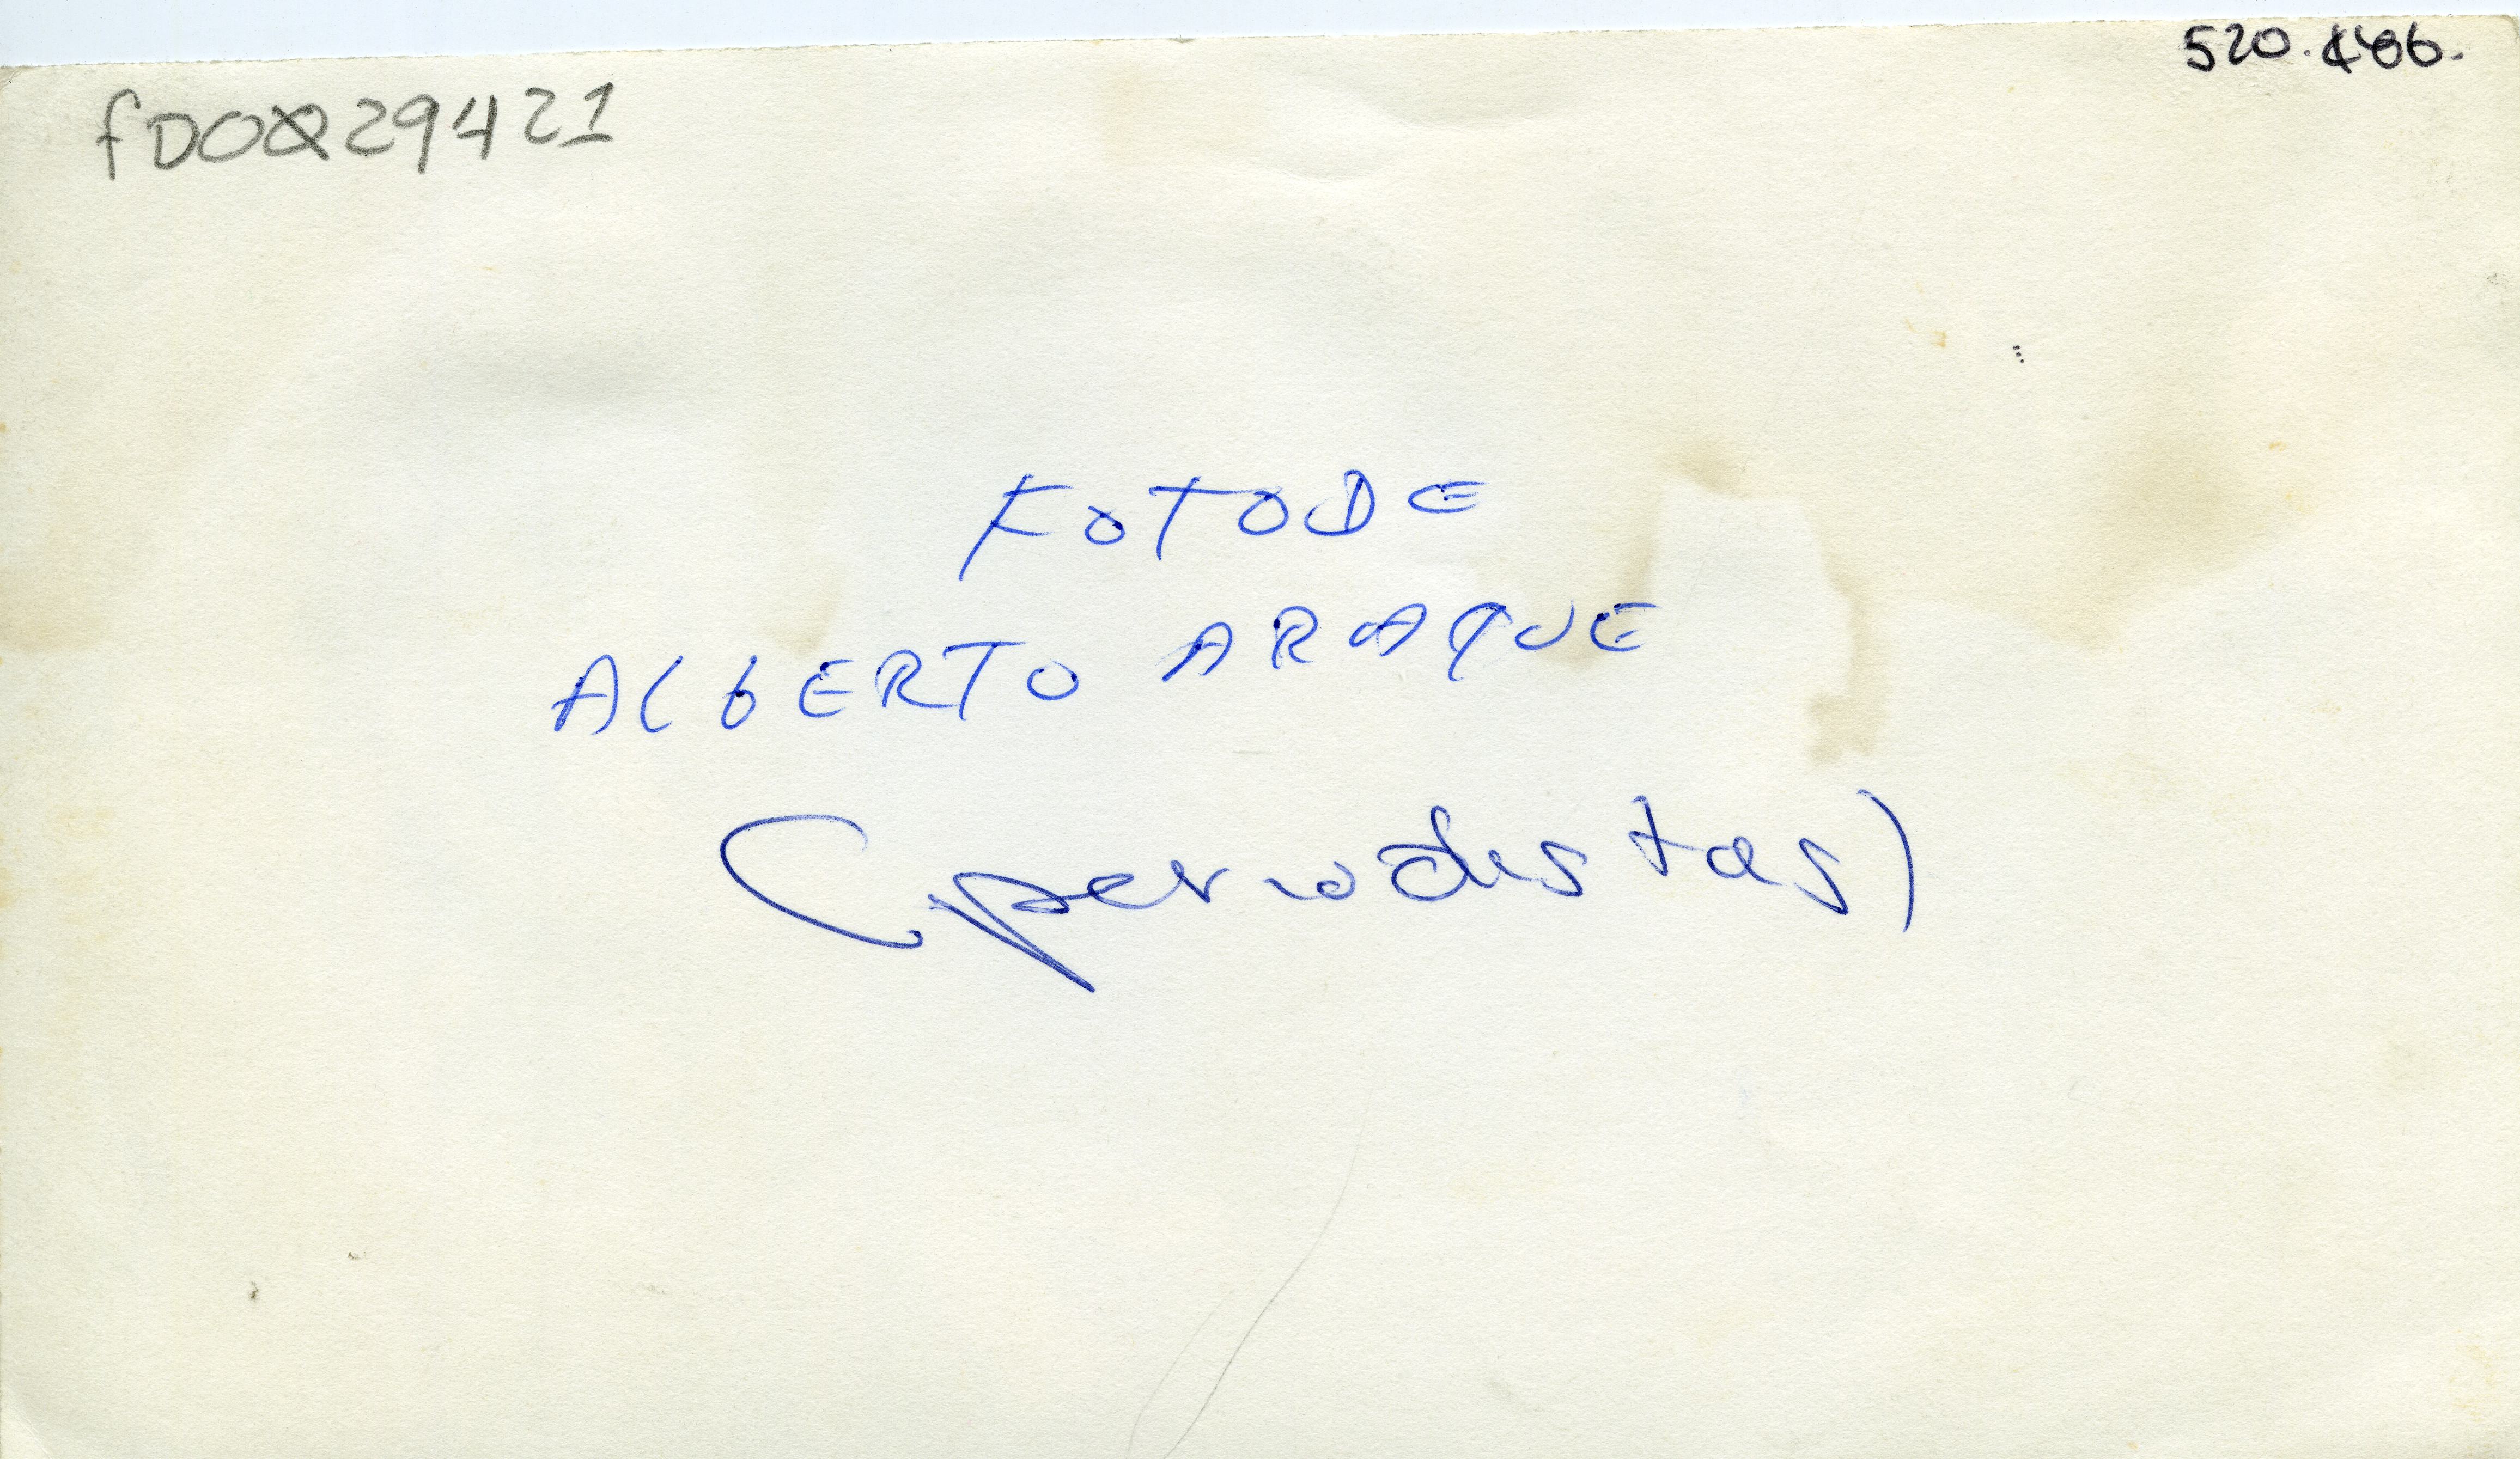 520.486.
fD0029421
FOTO DE
ALBERTO ARAQUE
(periodistas)